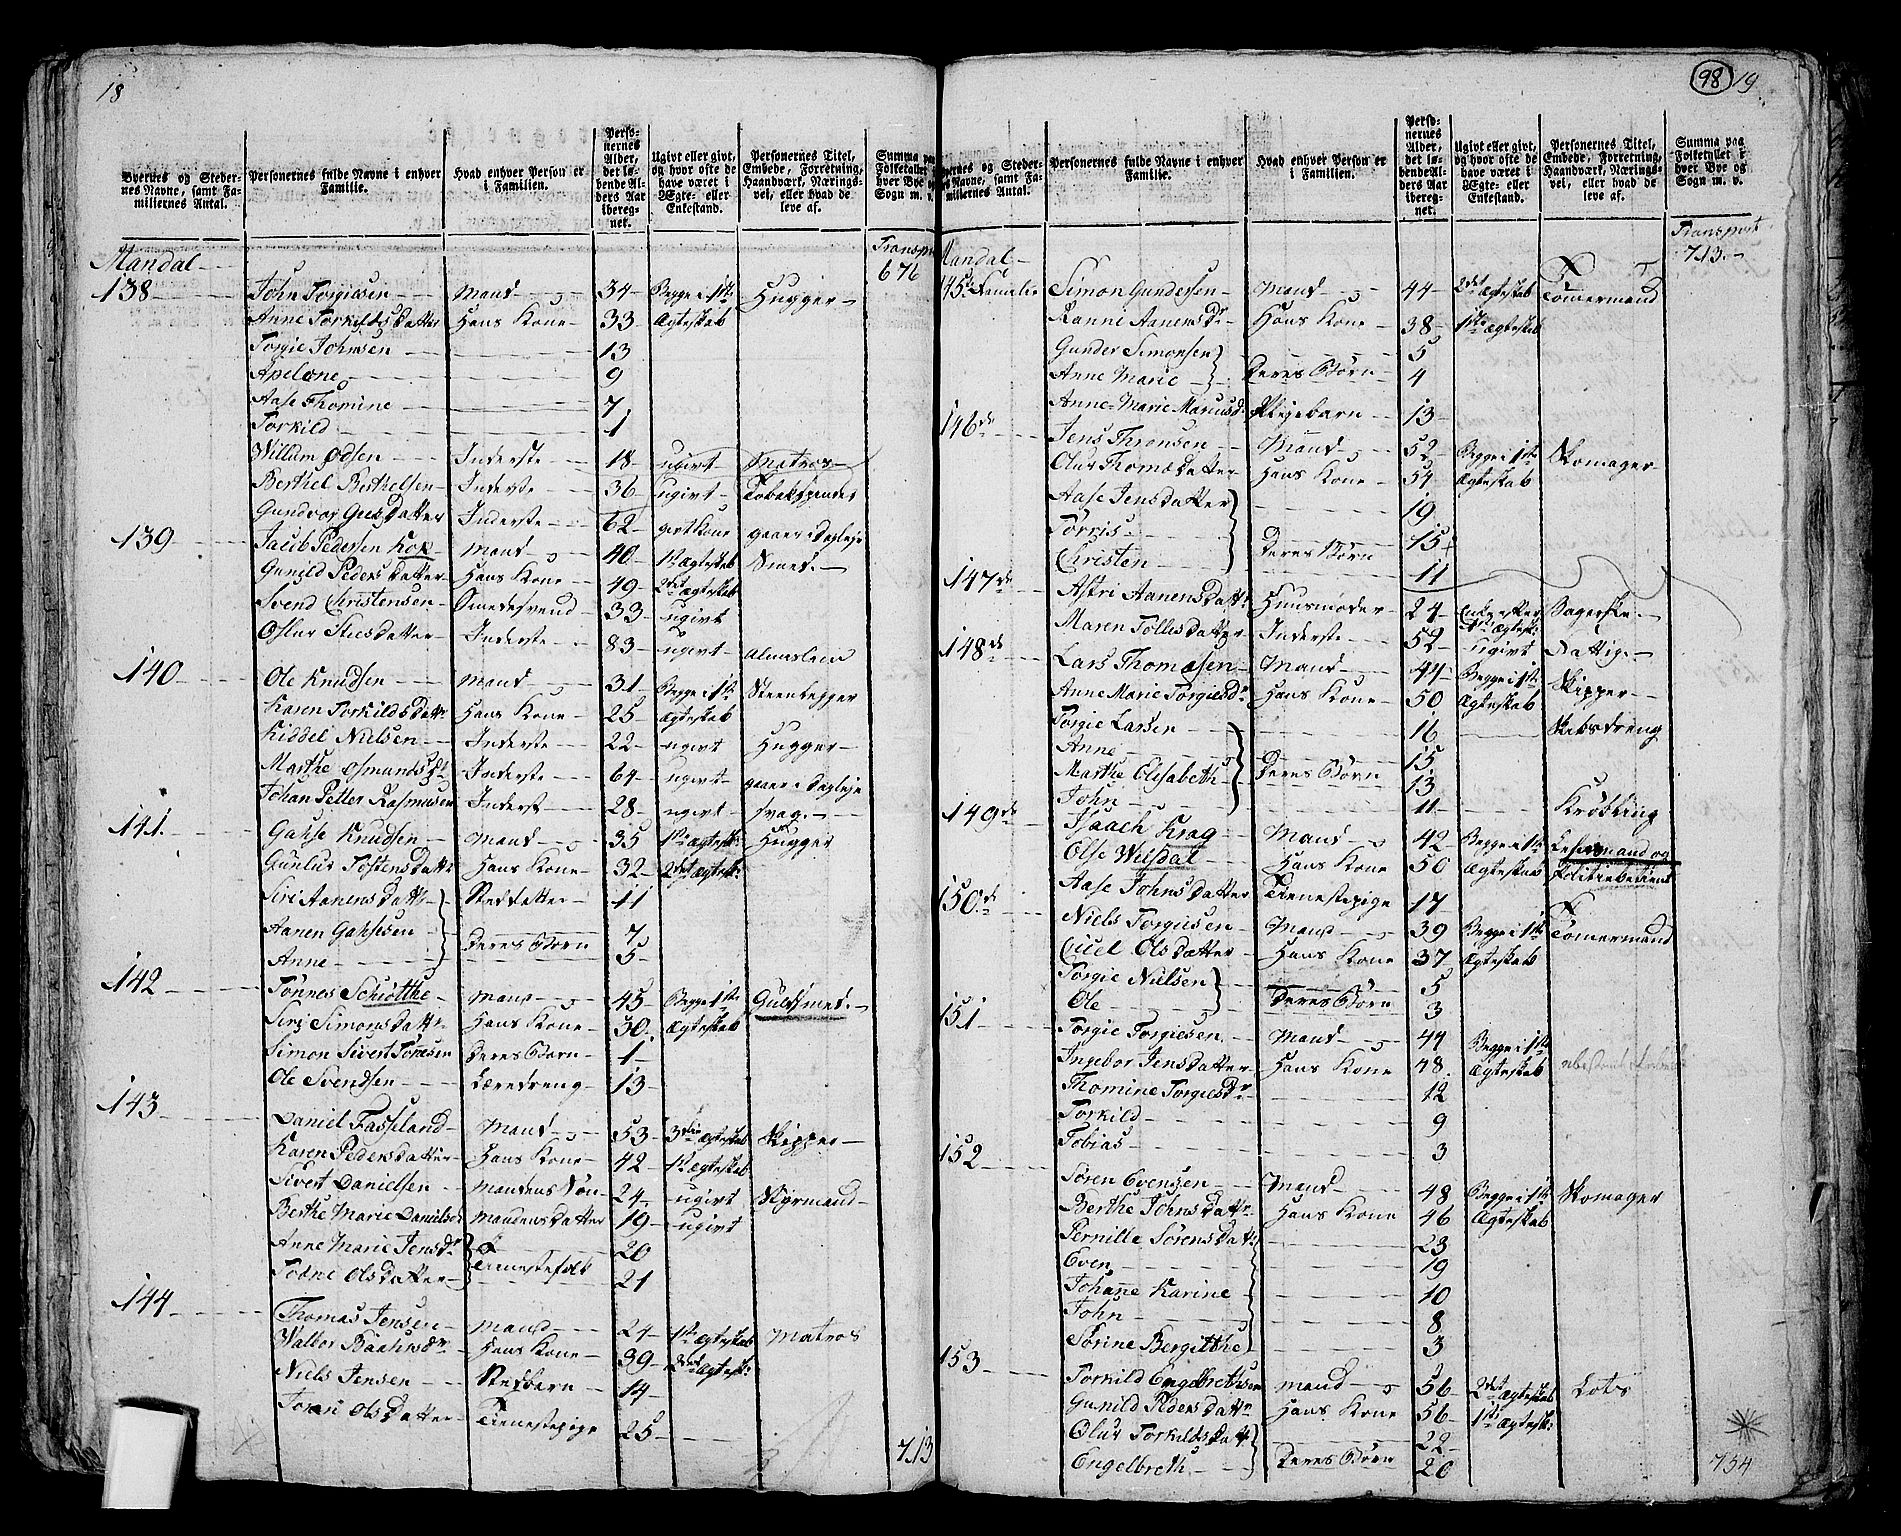 18
Byernes og Stedernes Navne, samt Familiernes Antal.
Personernes fulde Navne i enhver Familie.
Hvad enhver Person er i Familien.
Personernes Alder, det løbende Alders Aar iberegnet.
Ugivt eller givt, og hvor ofte de have været i Ægte- eller Enkestand.
Personernes Titel, Embede, Forretning, Haandværk, Næringsvei, eller hvad de leve af.
Summa paa Folketallet i hver Bye og Sogn m. v.
Mandal
Transp. 676
138 John Torgiesen Mand 34 Begge i 1ste Hugger
Anne Torkilds Datter Hans Kone 33 Ægteskab
Torgie Johnsen 13
Apelone 9
Aase Thomine 7
Torkild 1
Willum Odsen Inderste 18 ugivt Matros
Berthel Berthelsen Inderste 36 ugivt Tobakspinder
Gundvor Gusdatter Inderste 62 gaaer i Dagleje
139 Jacob Pedersen Kok Mand 40 1ste Ægteskab Smed.
Gunild Peders Datter Hans Kone 49 2det Ægteskab
Svend Christensen Smedesvend 33 ugivt
Inderste 83 ugivt Almaslem
140 Ole Knudsen Mand 31 Begge i 1ste Steenhugger
Karen Torkilds Datter Hans Kone 25 Ægteskab
Kiddel Nielsen Inderste 22 ugivt Hugger
Marthe Osmunds Dr Inderste 64 ugivt gaaer i Dagleje
Johan Petter Rasmusen Inderst 28 ugivt svag.
141. Gahse Knudsen Mand 35 1ste Ægtesk: Hugger
Gunlur Tostens Datter Hans Kone 32 2det Ægtesk:
Siri Aanens Datter Steddatter 11
Aanen Gahsesen 7
Anne Deres Børn 5
142 Tønnes Schiøtthe Mand 45 Begge i 1ste Guldsmed.
Siri Simons Datter Hans Kone 30. Ægteskab
Simon Sivert Tønesen Deres Børn 1
Ole Svendsen Læredreng 13
143 Daniel Fasseland Mand 53 3die Ægteskab Skipper
Karen Peders Datter Hans Kone 42 1ste Ægteskab
Sivert Danielsen Mandens Søn 24 ugivt Styrmand
Berthe Marie Daniels Mandens Datter 19 ugivt
Anne Marie Jens Dr 20
Todne Ols Datter Tienestefolk 21
144 Thomas Jensen Mand 24 1ste Ægteskab Matros
Hans Kone 39 2det Ægtesk:
Niels Jensen Stedbarn 14
Ols Datter Tienestepige 25
713
98 19
Byernes og Stedernes Navne, samt Familiernes Antal.
Personernes fulde Navne i enhver Familie.
Hvad enhver Person er i Familien.
Personernes Alder, det løbende Alders Aar iberegnet.
Ugivt eller givt, og hvor ofte de have været i Ægte- eller Enkestand.
Personernes Titel, Embede, Forretning, Haandværk, Næringsvei, eller hvad de leve af.
Summa paa Folketallet i hver Bye og Sogn m. v.
Mandal
Transport 713.
145de Familie Simon Gundersen Mand 44 2det Ægteskab Tømermand
Ranni Aanens Dr Hans Kone 38 1ste Ægteskab
Gunder Simonsen 5
Anne Marie Deres Børn 4
Anne Marie Pligebarn 13
146de Jens Thronsen Mand 52 Begge i 1ste Skomager
Olur Thomæ Datter Hans Kone 54 Ægteskab
Aase Jens Datter 19
Torris 15
Christen Deres Børn 11
147de Astri Aanens Datter Huusmoder 24 Enke efter 1ste Ægtesk: Bagerske
Maren Tolles Datter Inderste 52 ugivt Fattig
148de Lars Thomæsen Mand 44 Begge i 1ste Skipper
Anne Marie Torgies Dr Hans Kone 50 Ægteskab
Torgie Larsen 16 Skibsdreng
Anne 15
Marthe Elisabeth Deres Børn 13
John 11 Krøbling
149de Isaach Krag Mand 42 Begge i 1ste
Else Wilsdal Hans Kone 50 Ægteskab Politiebetient
Aase Johns Datter Tienestepige 17
150de Niels Torgiesen Mand 39 Begge i 1ste Tømermand
Ols Datter Hans Kone 37 Ægteskab
Torgie Nielsen 5
Ole Deres Børn 3
151 Torgie Torgiesen Mand 44 Begge i 1ste
Ingebor Jens Datter Hans Kone 48. Ægteskab
Thomine Torgies Dr 12
Torkild 9
Tobias 3
152 Søren Evensen Mand 48 Begge i 1ste Skomager
Berthe Johns Datter Hans Kone 46 Ægteskab
Pernille Sørens Datter 23
Even 19
Johane Karine 10
John 8
Sørine Bergitthe 3
153 Torkild Engelbrethsen Mand 56 2det Ægteskab Lots
Gunild Peders Datter Hans Kone 56 1ste Ægtesk:
Olur Torkilds Datter 22
Engelbreth Deres Børn 20
754